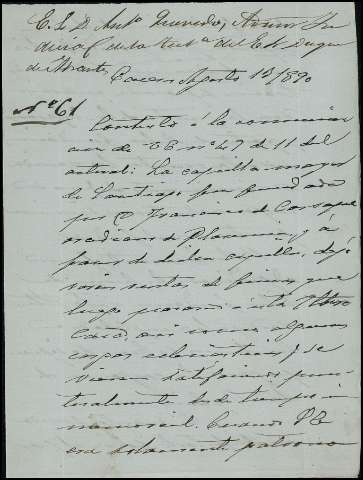 E. S. D. Antº Quevedo, 
de la test.ª del E. S. Duque
de Abrantes
Caceres Agosto 13/890
Nº 61
Contesto á la comunica
cion de V. E. nº 47 de 11 del
actual: La capilla mayor
de Santiago fue fundada
por D. Francisco de Carvajal
arcediano de Plasencia, y á
favor de dicha capilla, dejó
varias rentas de fincas que
luego pasaron á esta Iltre
Casa, asi como algunas
cargas eclesiasticas q se
vienen satisfaciendo punt
tualmente desde tiempo in
memorial. Cuando V. E.
era solamente patrono